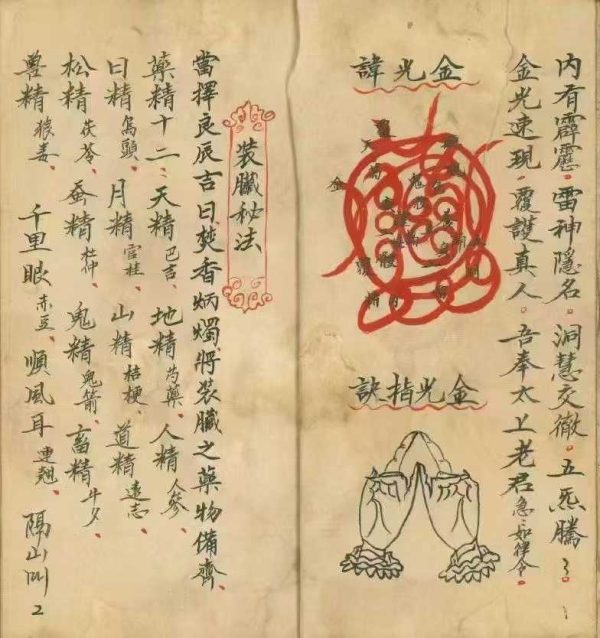 内有霹靂。雷神隱名。洞慧交徹。五炁騰〻。
金光速現。覆護真人。吾奉太上老君急〻如律令。
金光諱
金光指訣
裝臟秘法
當擇良辰吉日焚香炳燭將裝臟之藥物備齊、
藥精十二、天精巴吉、地精芍藥、人精人參、
日精烏頭、月精官桂、山精桔梗、道精遠志、
松精茯苓、蚕精杜仲、鬼精鬼箭、畜精牛夕、
兽精狼毒、千里眼赤豆、順風耳連翹、隔山叫
2